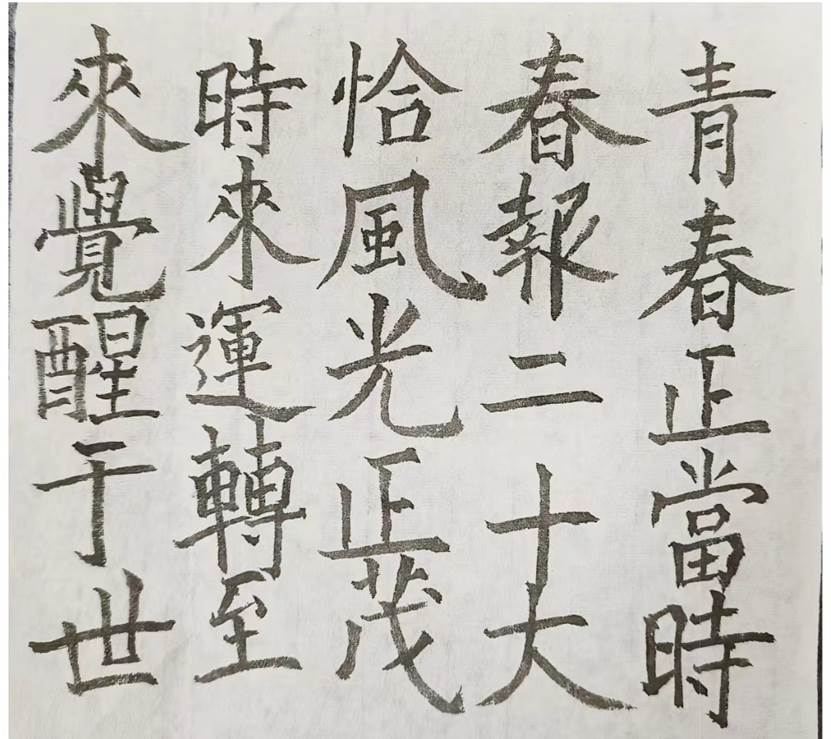 青春正當時
春報二十大
恰風光正茂
時來運轉至
來覺醒于世